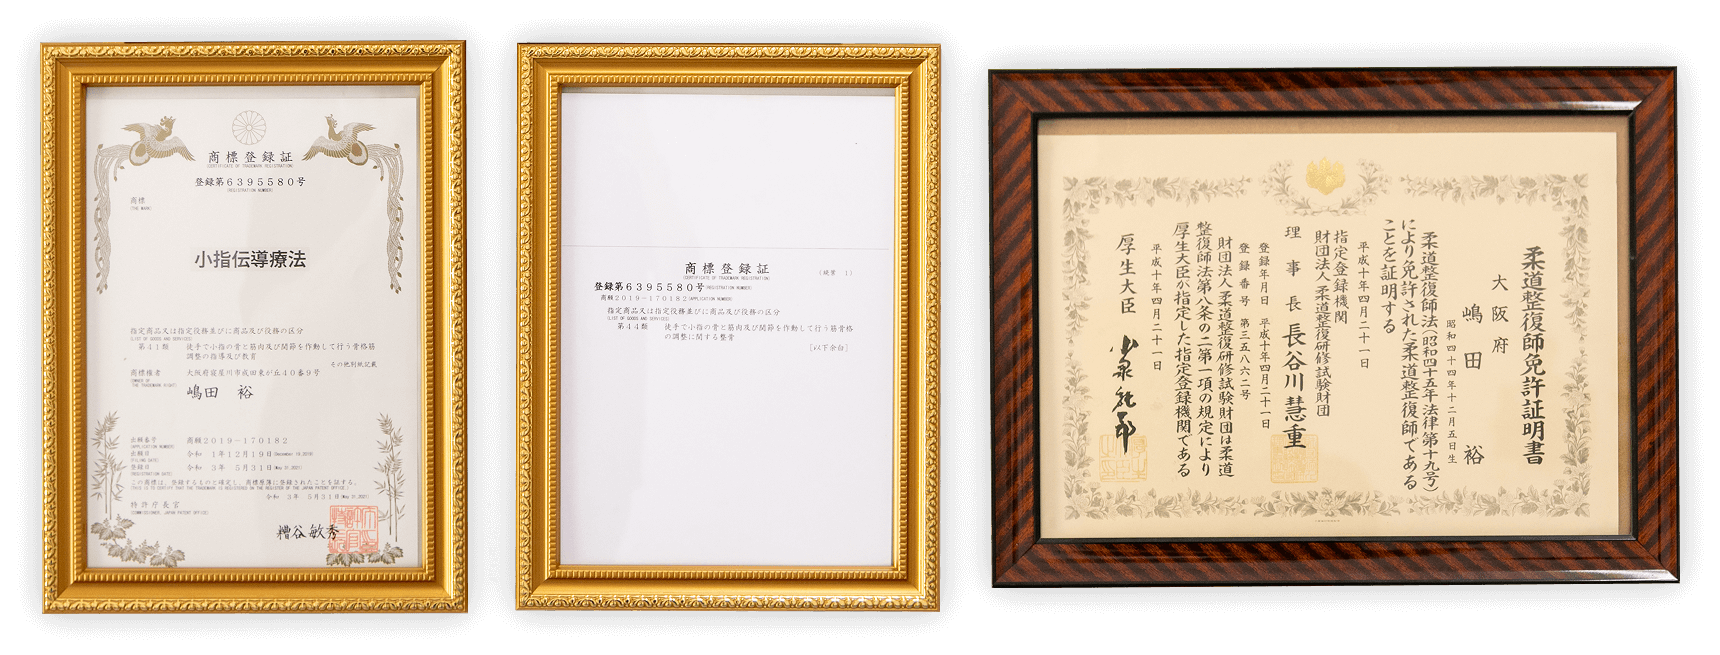 商標登録証
(CERTIFICATE OF TRADEMARK REGISTRATION)
登録第6395580号
(REGISTRATION NUMBER)
商標
(THE MARK)
小指伝導療法
指定商品又は指定役務並びに商品及び役務の区分
(LIST OF GOODS AND SERVICES)
第41類 徒手で小指の骨と筋肉及び関節を作動して行う骨格筋
調整の指導及び教育
その他別紙記載
商標権者 大阪府寝屋川市成田東が丘40番9号
(OWNER OF THE TRADEMARK RIGHT)
嶋田 裕
出願番号 商願2019-170182
(APPLICATION NUMBER)
出願日 令和 1年12月19日(December 19,2019)
(FILING DATE)
登録日 令和 3年 5月31日(May 31,2021)
(REGISTRATION DATE)
この商標は、登録するものと確定し、商標原簿に登録されたことを証する。
(THIS IS TO CERTIFY THAT THE TRADEMARK IS REGISTERED ON THE REGISTER OF THE JAPAN PATENT OFFICE.)
令和 3年 5月31日(May 31,2021)
特許庁長官
(COMMISSIONER, JAPAN PATENT OFFICE)
糟谷敏秀
商標登録証
(CERTIFICATE OF TRADEMARK REGISTRATION)
(続葉 1)
登録第6395580号(REGISTRATION NUMBER)
商願2019-170182(APPLICATION NUMBER)
指定商品又は指定役務並びに商品及び役務の区分
(LIST OF GOODS AND SERVICES)
第44類 徒手で小指の骨と筋肉及び関節を作動して行う筋骨格
の調整に関する整骨
[以下余白]
柔道整復師免許証明書
大阪府
嶋田 裕
昭和四十四年十二月五日生
柔道整復師法(昭和四十五年法律第十九号)
により免許された柔道整復師である
ことを証明する
平成十年四月二十一日
指定登録機関
財団法人 柔道整復研修試験財団
理事長 長谷川慧重
登録年月日 平成十年四月二十一日
登録番号 第三五八六二号
財団法人柔道整復研修試験財団は柔道
整復師法第八条の二第一項の規定により
厚生大臣が指定した指定登録機関である
平成十年四月二十一日
厚生大臣 小泉純一郎